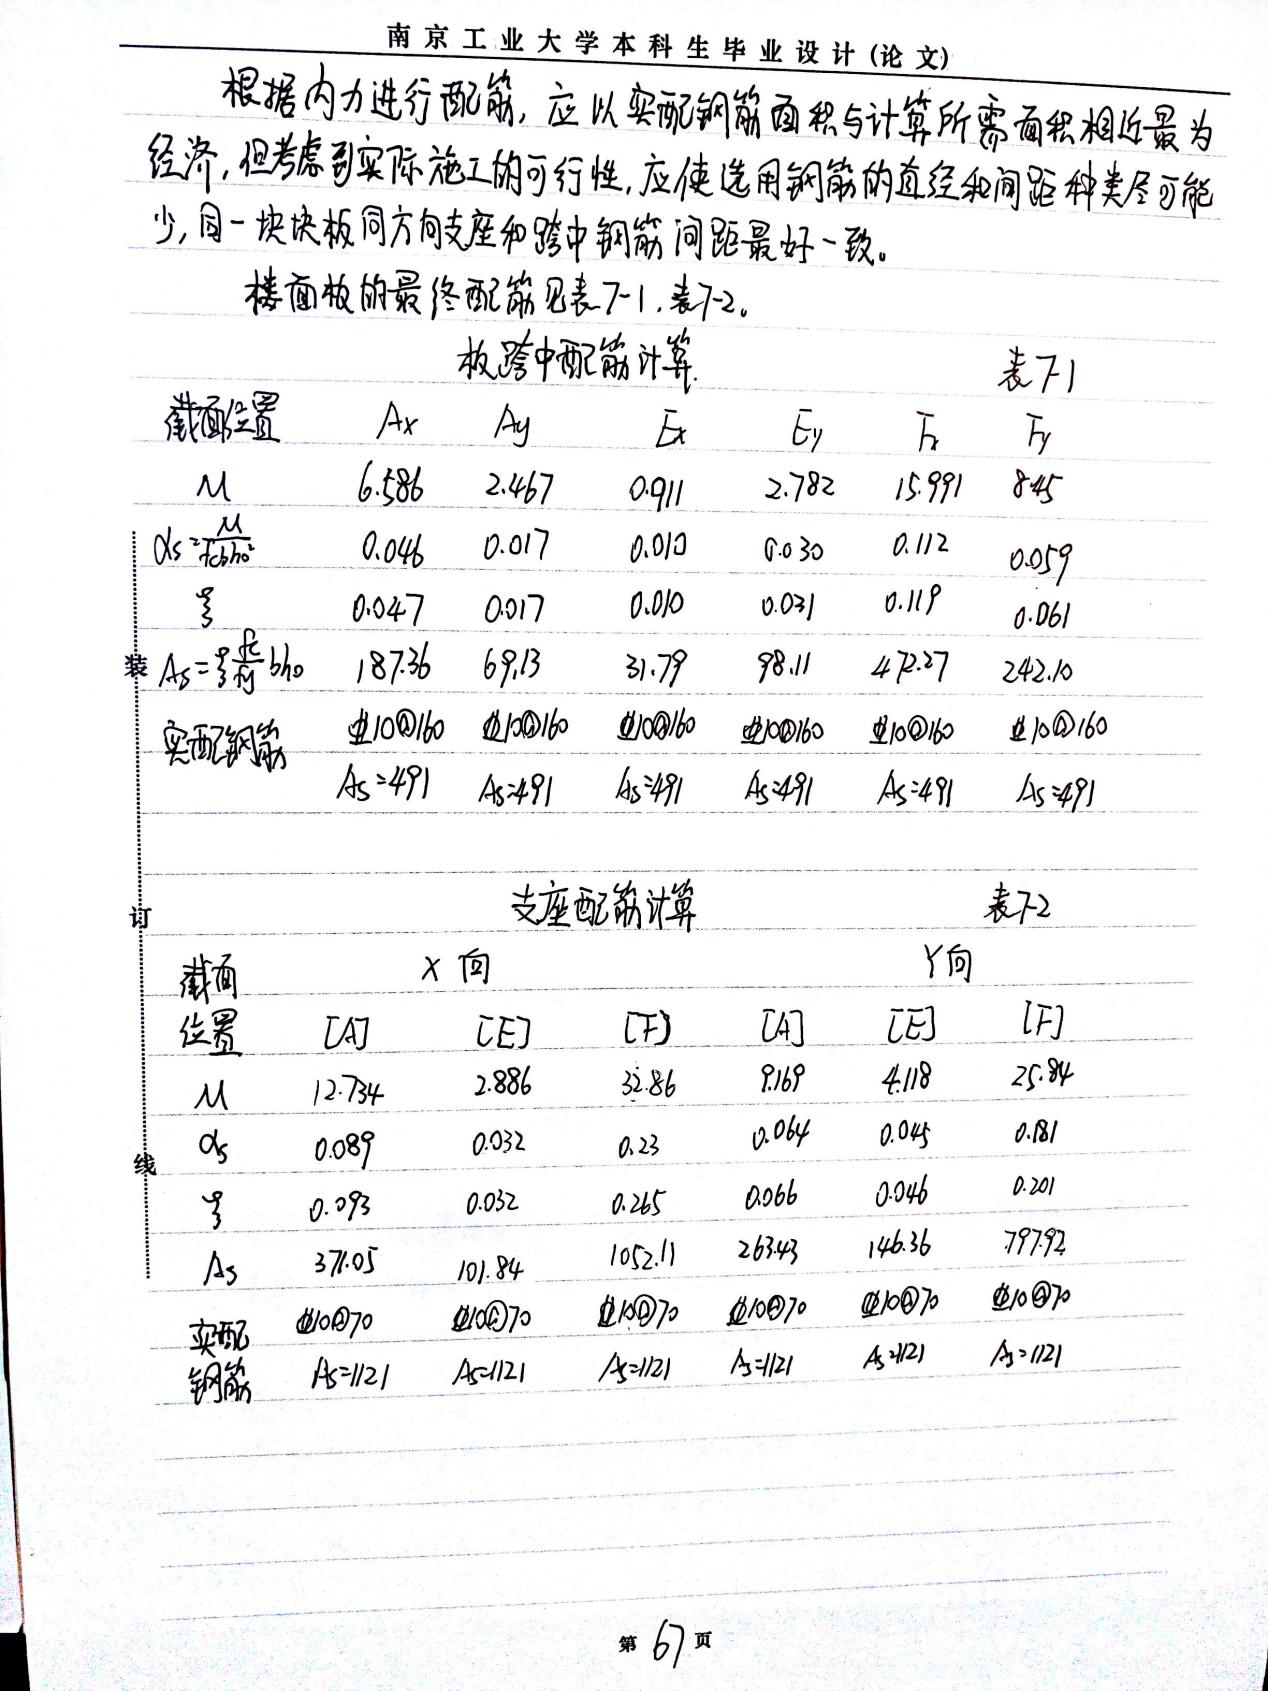 南京工业大学本科生毕业设计(论文)
根据内力进行配筋,应以实配钢筋面积与计算所需面积相近最为
经济,但考虑到实际施工的可行性,应使选用钢筋的直径和间距种类尽可能
少,同一块块板同方向支座和跨中钢筋间距最好一致。
楼面板的最终配筋见表7-1.表7-2。
板跨中配筋计算. 表7-1
截面位置 Ax Ay Ex Ey Fx Fy
M 6.586 2.467 0.911 2.782 15.991 8.45
αs=M/fcbh₀² 0.046 0.017 0.010 0.030 0.112 0.059
ξ 0.047 0.017 0.010 0.031 0.119 0.061
As=ξfc/fy bh₀ 187.36 69.13 31.79 98.11 472.27 242.10
实配钢筋 ⏀10@160 ⏀10@160 ⏀10@160 ⏀10@160 ⏀10@160 ⏀10@160
As=491 As=491 As=491 As=491 As=491 As=491
支座配筋计算 表7-2
截面 X向 Y向
位置 [A] [E] [F] [A] [E] [F]
M 12.734 2.886 32.86 9.169 4.118 25.84
αs 0.089 0.032 0.23 0.064 0.045 0.181
ξ 0.093 0.032 0.265 0.066 0.046 0.201
As 371.05 101.84 1052.11 263.43 146.36 797.92
实配 ⏀10@70 ⏀10@70 ⏀10@70 ⏀10@70 ⏀10@70 ⏀10@70
钢筋 As=1121 As=1121 As=1121 As=1121 As=1121 As=1121
装
订
线
第 67 页